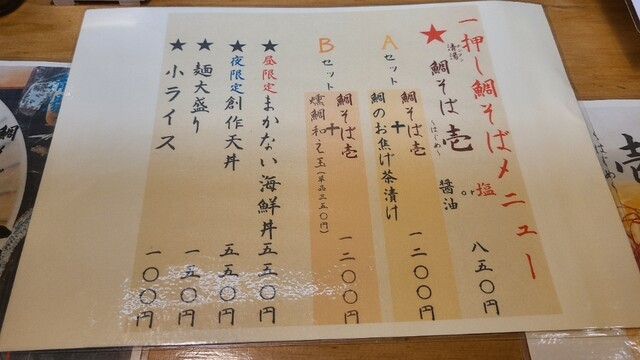 一押し鯛そばメニュー
★鯛そば壱 醤油or塩 八五〇円
清湯
〜はじめ〜
Aセット
鯛そば壱
+
鯛のお焦げ茶漬け 一二〇〇円
Bセット
鯛そば壱
+
燻鯛和え玉(単品三五〇円) 一二〇〇円
★昼限定まかない海鮮丼 五五〇円
★夜限定創作天丼 五五〇円
★麺大盛り 一五〇円
★小ライス 一〇〇円
鯛
壱